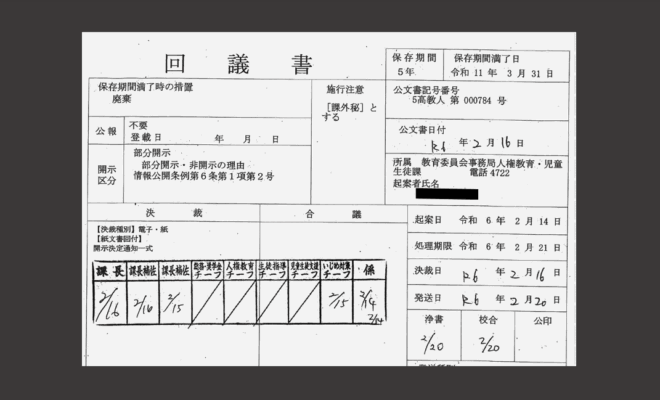 回議書
保存期間
5年
保存期間満了日
令和11年3月31日
保存期間満了時の措置
廃棄
施行注意
［課外秘］と
する
公文書記号番号
5高教人 第 000784 号
公報
不要
登載日 年 月 日
公文書日付
R6年2月16日
開示
区分
部分開示
部分開示・非開示の理由
情報公開条例第6条第1項第2号
所属 教育委員会事務局人権教育・児童
生徒課 電話4722
起案者氏名
決裁
合議
起案日 令和6年2月14日
【決裁種別】電子・紙
【紙文書回付】
開示決定通知一式
処理期限 令和6年2月21日
課長 課長補佐 課長補佐
人権教育チーフ 生徒指導チーフ 児童生徒支援チーフ いじめ対策チーフ 係
2/16 2/16 2/15 2/15 2/14
2/14
決裁日 R6年2月16日
発送日 R6年2月20日
浄書 校合 公印
2/20 2/20